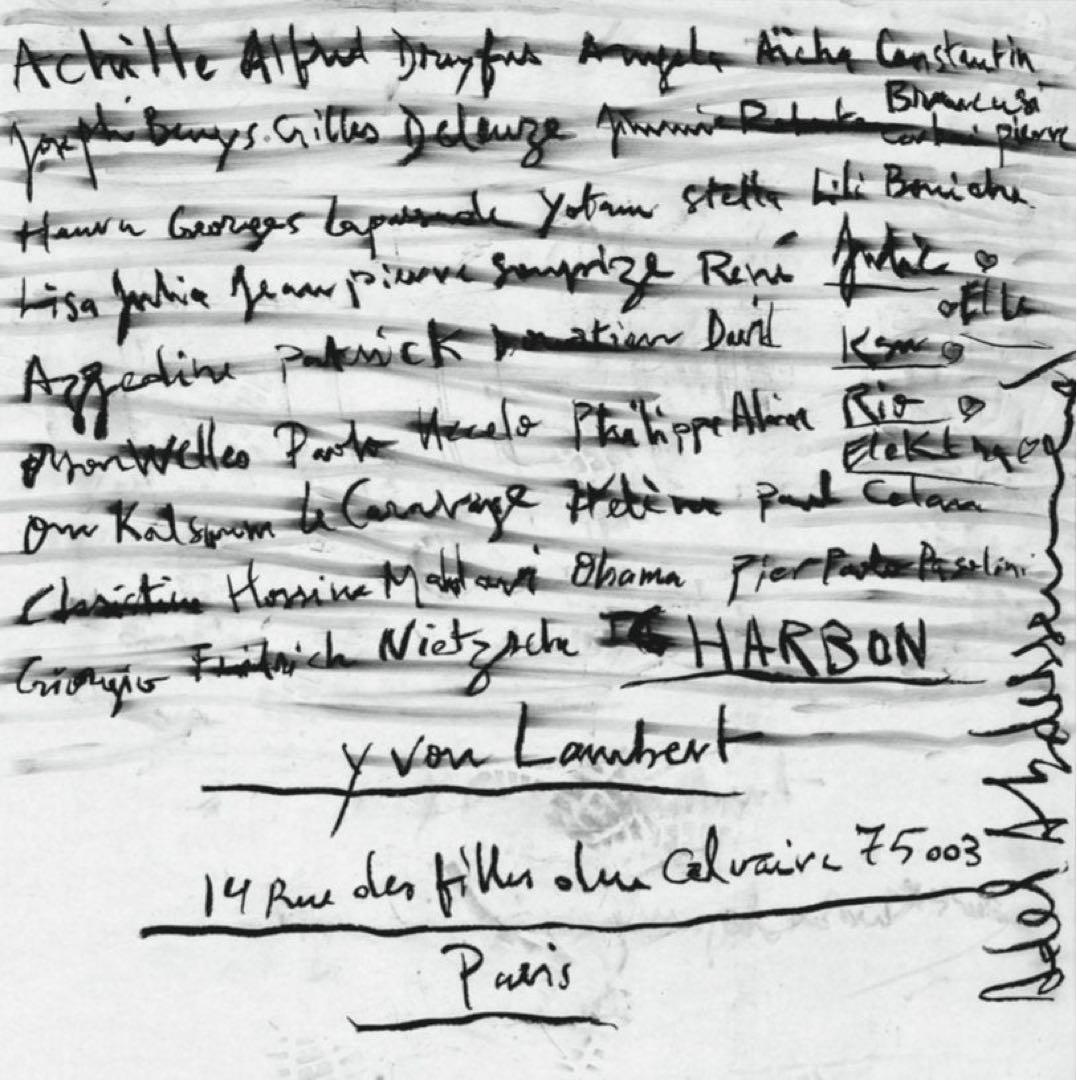 Achille Alfred Dreyfus Angela Aïcha Constantin
Brancusi
Joseph Beuys. Gilles Deleuze Jimmie pierre
Georges Lapassade Yotam stella Lili Boniche
Lisa Julia Jean pierre René Julie
Elle
Azzedine Patrick David
Rio
Orson Welles Paolo Uccelo Philippe Elektra
Oum Kalsoum Le Caravage Hélène paul Celan
Christine Hossine Obama Pier Paolo Pasolini
Giorgio Friedrich Nietzsche HARBON
yvon Lambert
14 Rue des filles du Calvaire 75003
Paris
Adel Abdessemed